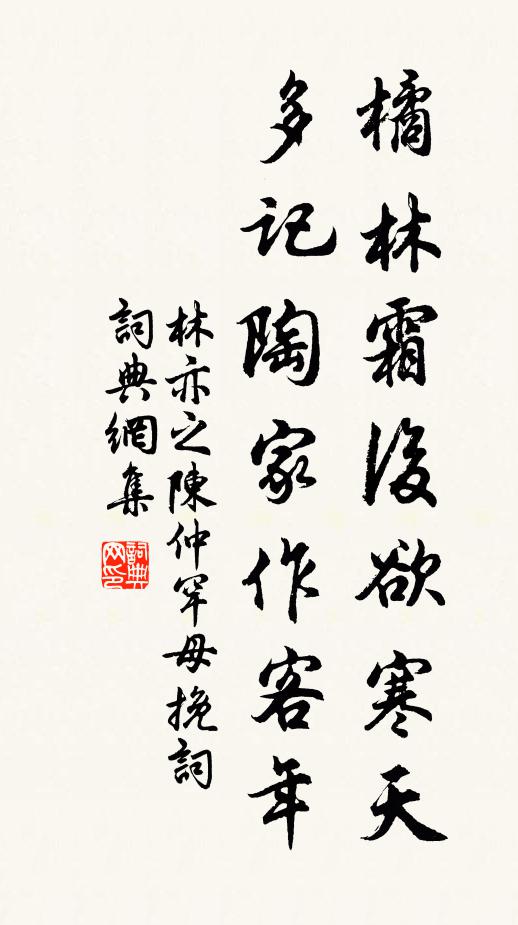 橘林霜後欲寒天
多記陶家作客年
林亦之陳仲罕母挽詞
詞典網集
詞典网印